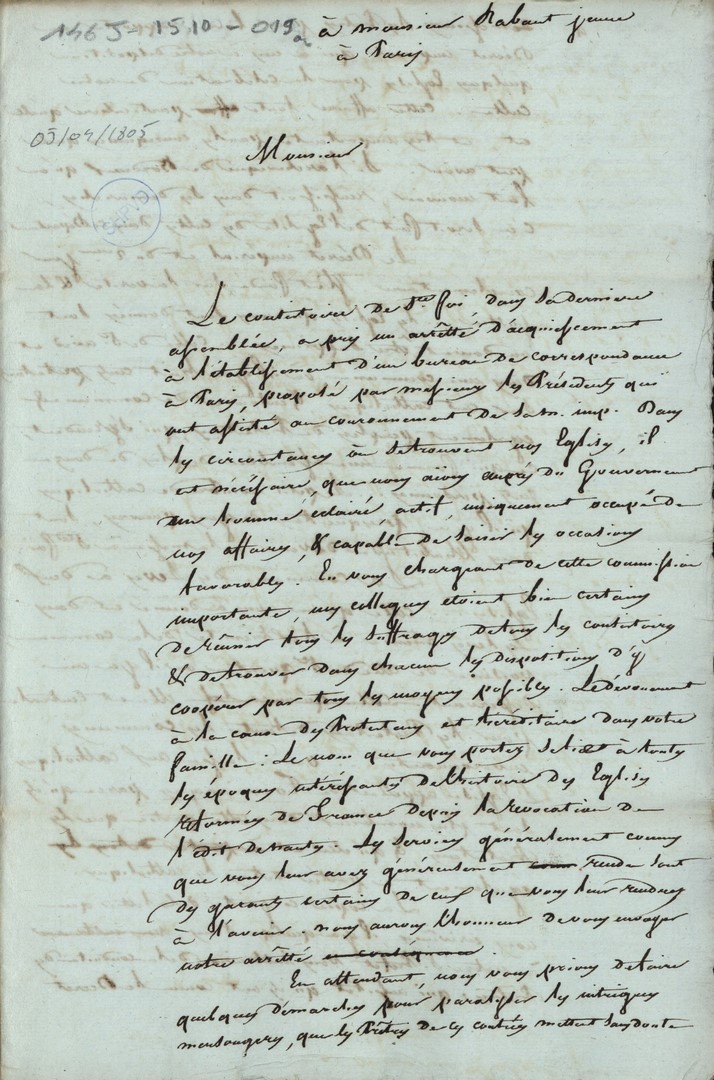 146J-1510-019a
à monsieur Rabaut jeune
à Paris
05/04/1805
Monsieur
SHPVD
Le consistoire de Ste foi, dans sa derniere
assemblée, a pris un arrêtté d'acquiescement
à l'établissement d'un bureau de correspondance
à Paris, proposé par messieurs les Présidents qui
ont assisté au couronnement de sa m. imp. Dans
les circonstances où se trouvent nos Eglises, il
est nécessaire, que nous aïons auprés du Gouvernement
un homme éclairé actif, uniquement occupé de
nos affaires, & capable de saisir les occasions
favorables. En vous chargeant de cette commission
importante, mes collegues etoient bien certains
de réunir tous les suffrages de tous les consistoires
& de trouver dans chacun les dispositions d'y
coopérer par tous les moyens possibles. Le dévouement
à la cause des Protestans est héréditaire dans votre
famille: Le nom que vous portez se lie à toutes
les époques intéressantes de l'histoire des Eglises
réformées de France depuis la révocation de
l'édit de nantes. Les services généralement connus
que vous leur avez généreusement rendus sont
des garants certains de ceux que vous leur rendrez
à l'avenir. nous aurons l'honneur de vous envoyer
notre arrêtté en conséquence.
En attendant, nous vous prions de faire
quelques démarches pour paralyser les intrigues
mensongeres, que les Prêtres de ces contrées mettent sans doute